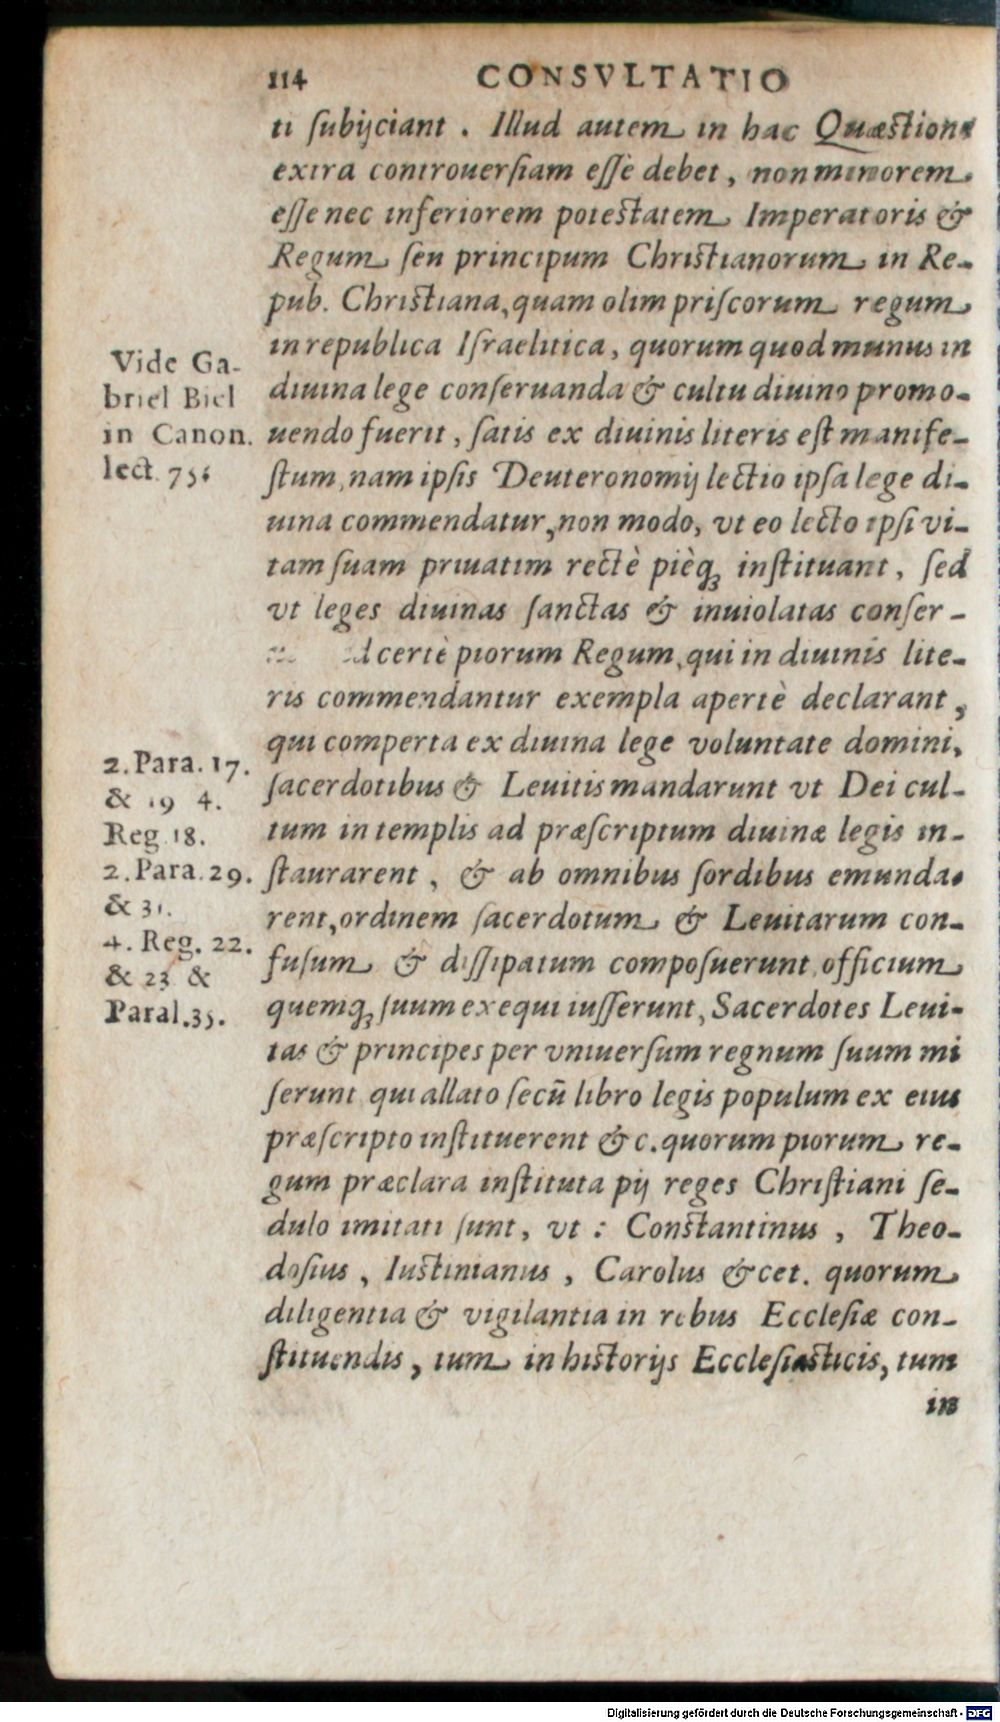 114 CONSVLTATIO
ti ſubijciant . Illud autem in hac Quæſtione
extra controuerſiam eſſe debet, non minorem
eſſe nec inferiorem poteſtatem Imperatoris &
Regum ſeu principum Chriſtianorum in Re-
pub. Chriſtiana, quam olim priſcorum regum
in republica Iſraelitica, quorum quod munus in
diuina lege conſeruanda & cultu diuino promo-
uendo fuerit, ſatis ex diuinis literis eſt manife-
ſtum, nam ipſis Deuteronomij lectio ipſa lege di-
uina commendatur, non modo, vt eo lecto ipſi vi-
tam ſuam priuatim rectè pièq; inſtituant, ſed
vt leges diuinas ſanctas & inuiolatas conſer-
certè piorum Regum, qui in diuinis lite-
ris commendantur exempla apertè declarant,
qui comperta ex diuina lege voluntate domini,
ſacerdotibus & Leuitis mandarunt vt Dei cul-
tum in templis ad præſcriptum diuinæ legis in-
ſtaurarent, & ab omnibus ſordibus emunda-
rent, ordinem ſacerdotum & Leuitarum con-
fuſum & diſſipatum compoſuerunt officium
quemq; ſuum exequi iuſſerunt, Sacerdotes Leui-
tas & principes per vniuerſum regnum ſuum mi
ſerunt qui allato ſecū libro legis populum ex eius
præſcripto inſtituerent & c. quorum piorum re-
gum præclara inſtituta pij reges Chriſtiani ſe-
dulo imitati ſunt, vt : Conſtantinus , Theo-
doſius , Iuſtinianus , Carolus & cet. quorum
diligentia & vigilantia in rebus Eccleſiæ con-
ſtituendis, tum in hiſtorijs Eccleſiaſticis, tum
in
Vide Ga-
briel Biel
in Canon.
lect. 75.
2. Para. 17.
& 19 4.
Reg. 18.
2. Para. 29.
& 31.
4. Reg. 22.
& 23 &
Paral. 35.
Digitalisierung gefördert durch die Deutsche Forschungsgemeinschaft - DFG